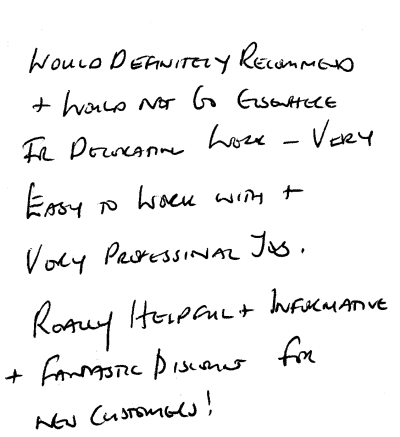 Would Definitely Recommend
+ Would not Go Elsewhere
For Decorating Work – Very
Easy to work with +
Very Professional Job.
Really Helpful + Informative
+ Fantastic Discount for
new customers!